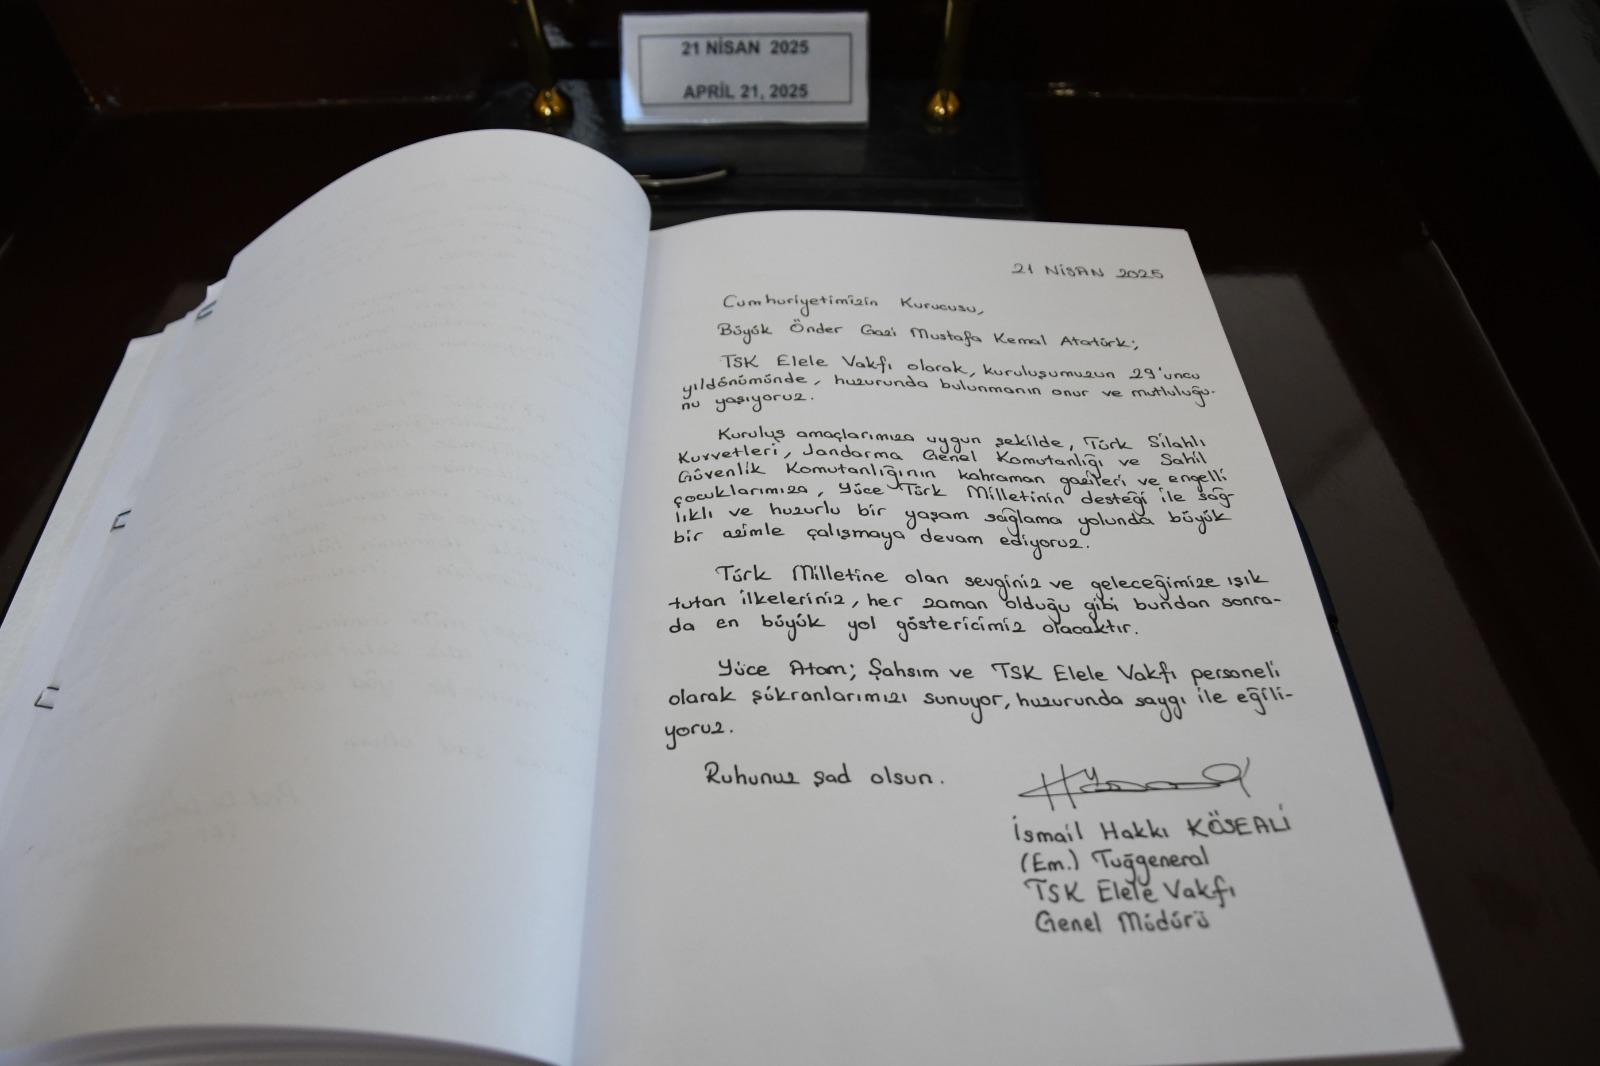 21 NİSAN 2025
APRİL 21, 2025
21 NİSAN 2025
Cumhuriyetimizin Kurucusu,
Büyük Önder Gazi Mustafa Kemal Atatürk;
TSK Elele Vakfı olarak, kuruluşumuzun 29'uncu
yıldönümünde, huzurunda bulunmanın onur ve mutluluğu-
nu yaşıyoruz.
Kuruluş amaçlarımıza uygun şekilde, Türk Silahlı
Kuvvetleri, Jandarma Genel Komutanlığı ve Sahil
Güvenlik Komutanlığının kahraman gazileri ve engelli
çocuklarımıza, Yüce Türk Milletinin desteği ile sağ-
lıklı ve huzurlu bir yaşam sağlama yolunda büyük
bir azimle çalışmaya devam ediyoruz.
Türk Milletine olan sevginiz ve geleceğimize ışık
tutan ilkeleriniz, her zaman olduğu gibi bundan sonra-
da en büyük yol göstericimiz olacaktır.
Yüce Atam; Şahsım ve TSK Elele Vakfı personeli
olarak şükranlarımızı sunuyor, huzurunda saygı ile eğili-
yoruz.
Ruhunuz şad olsun.
İsmail Hakkı KÖSEALİ
(Em.) Tuğgeneral
TSK Elele Vakfı
Genel Müdürü